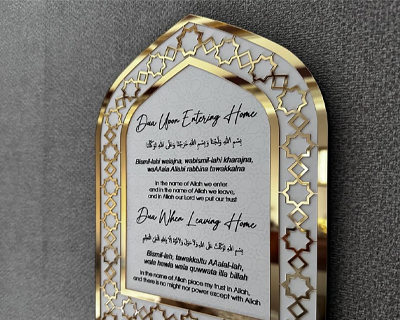 Dua Upon Entering Home
بِسْمِ اللهِ وَلَجْنَا وَبِسْمِ اللهِ خَرَجْنَا وَعَلَى اللهِ تَوَكَّلْنَا
Bismil-lahi walajna, wabismil-lahi kharajna,
waAAala Allahi rabbina tawakkalna
In the name of Allah we enter
and in the name of Allah we leave,
and in Allah our Lord we put our trust
Dua When Leaving Home
بِسْمِ اللهِ تَوَكَّلْتُ عَلَى اللهِ وَلَا حَوْلَ وَلَا قُوَّةَ إِلَّا بِاللهِ العَلِيِّ العَظِيمِ
Bismil-lah, tawakkaltu AAalal-lah,
wala hawla wala quwwata illa billah
In the name of Allah place my trust in Allah,
and there is no might nor power except with Allah